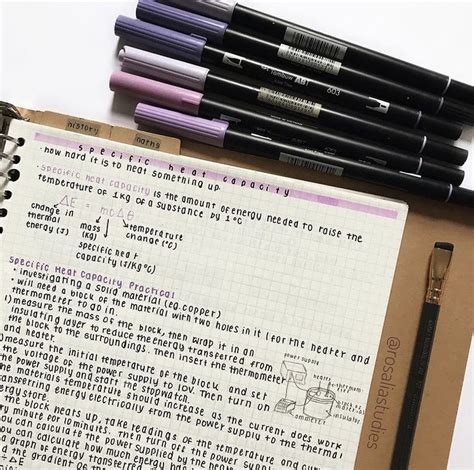 history
maths
Tombow ABT
603
specific heat capacity
· how hard it is to heat something up.
· specific heat capacity is the amount of energy needed to raise the
temperature of 1kg of a substance by 1°C
ΔE = mcΔθ
change in
thermal
energy (J)
mass
(kg)
temperature
change (°C)
specific heat
capacity (J/kg°C)
specific Heat Capacity Practical
· investigating a solid material (eg. copper)
· will need a block of the material with two holes in it (for the heater and
thermometer to go in.
1) measure the mass of the block, then wrap it in an
insulating layer to reduce the energy transferred from
the block to the surroundings. Then insert the thermometer
and heater.
measure the initial temperature of the block and set
the voltage of the power supply to 10V. Then turn on
the power supply and start the stopwatch.
materials temperature should increase as the current does work
transferring energy electrically from the power supply to the thermal
energy store.
the block heats up, take readings of the temperature and
every minute for 10 minutes. Then turn off the power supply
can calculate the power supplied by the
can calculate how much energy has
graph of energy transferred
the gradient of the
power supply
heater
thermometer
ammeter
insulator
@rosaliastudies